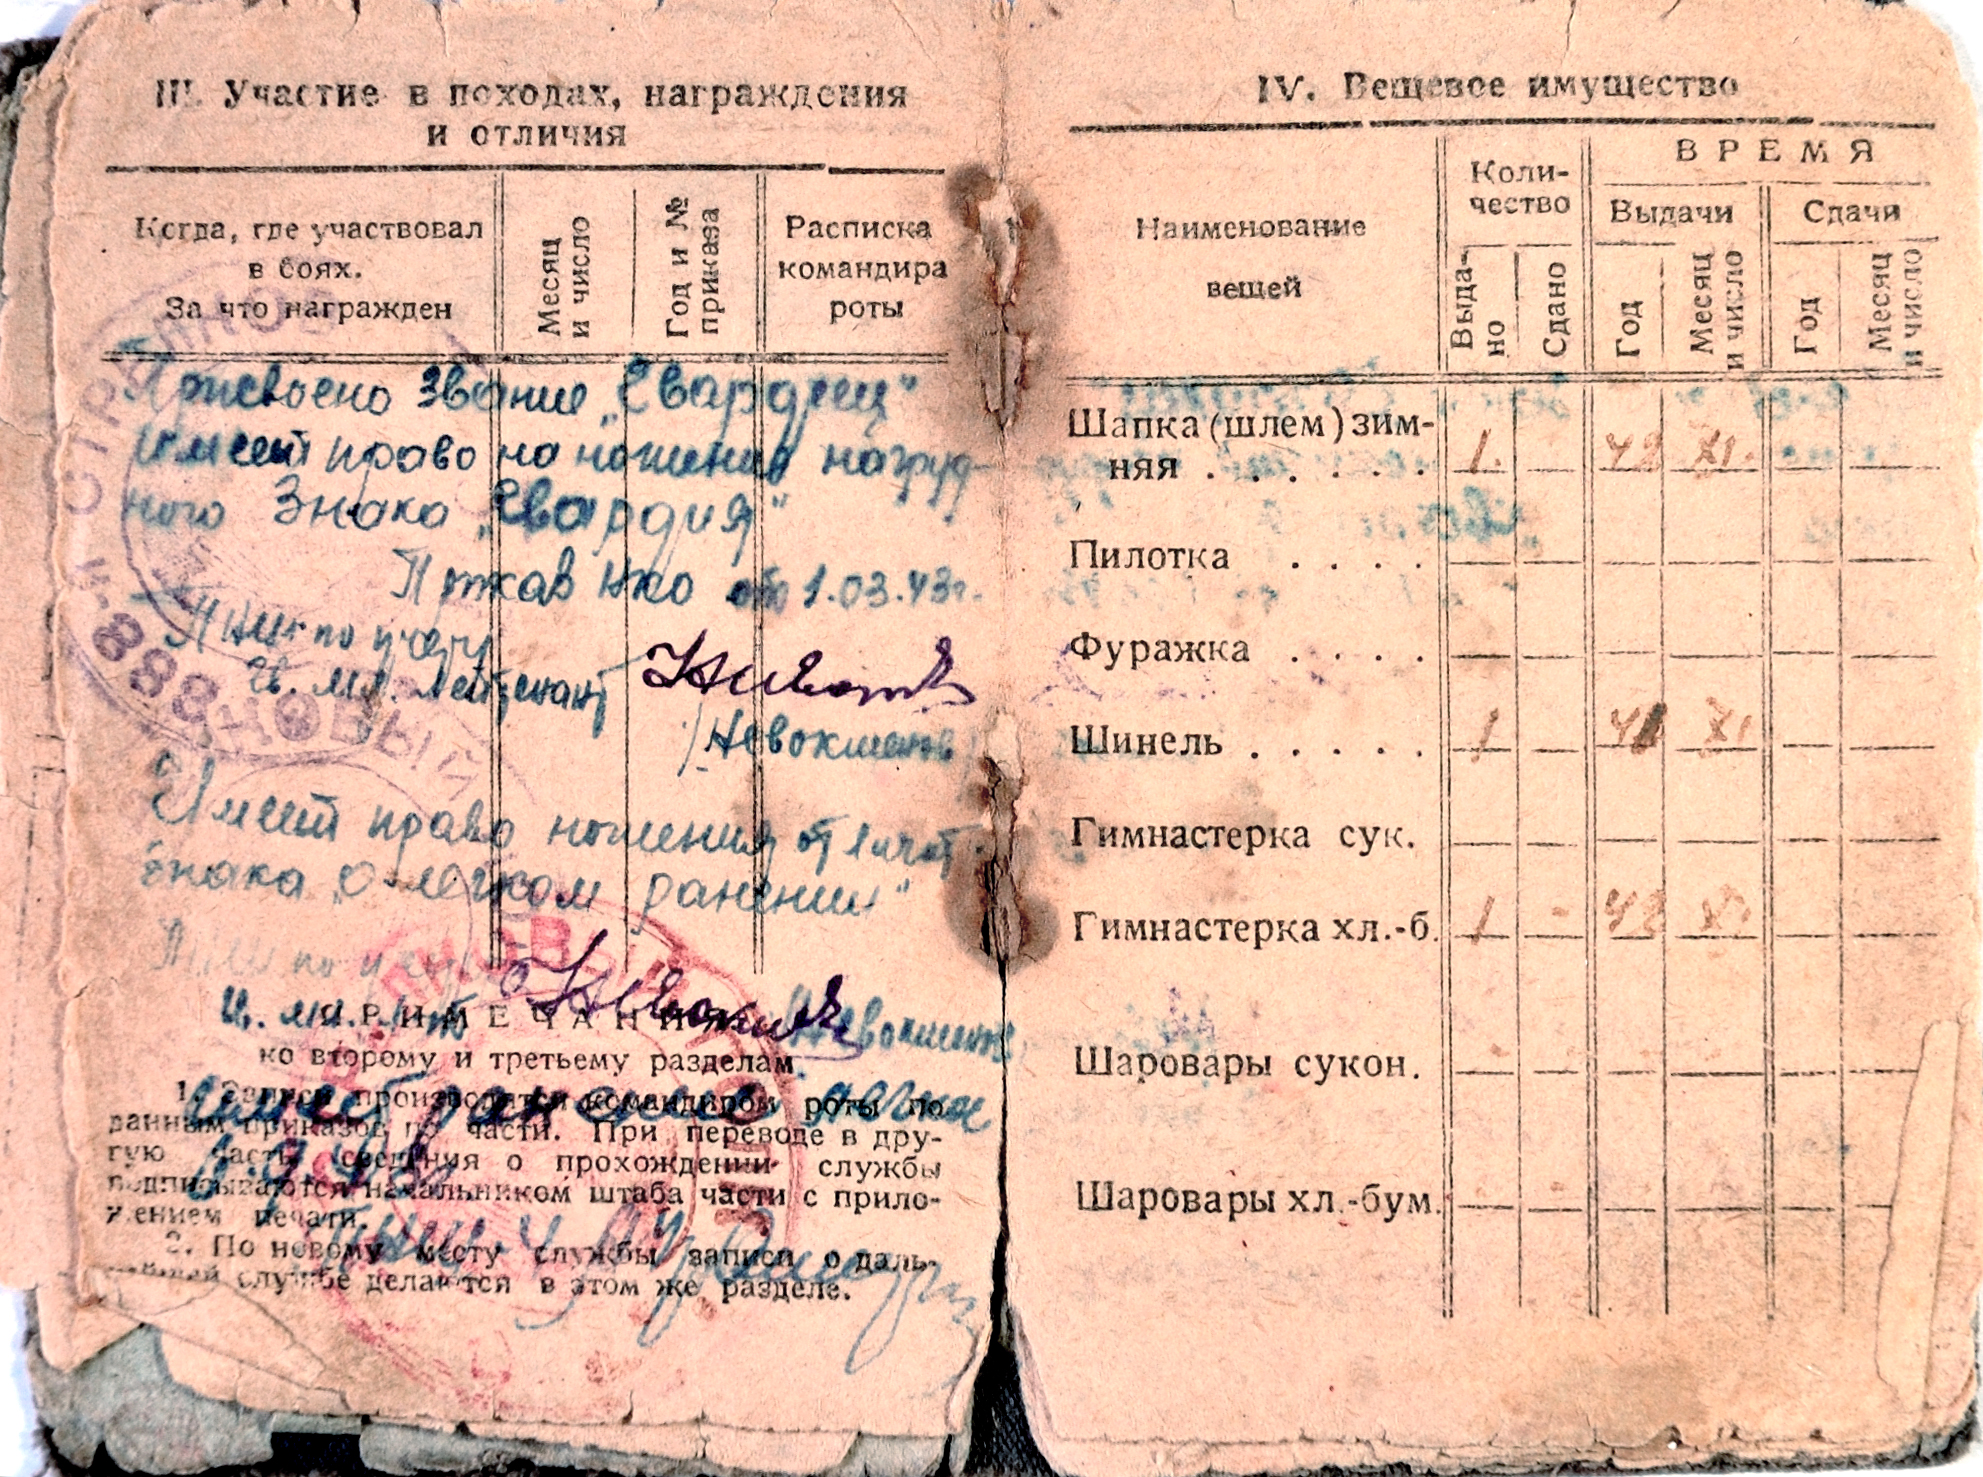 III. Участие в походах, награждения
и отличия
Когда, где участвовал
в боях.
За что награжден
Месяц
и число
Год и №
приказа
Расписка
командира
роты
Присвоено Звание „Гвардеец“
имеет право на ношения нагруд-
ного Знака „Гвардия“
Приказ НКО от 1.03.43г.
ПНШ по учету
Гв. мл. лейтенант
/Невокшенов
Имеет право ношения отличит.
Знака „О легком ранении“
ПНШ по учету
ПРИМЕЧАНИЯ
ко второму и третьему разделам.
1. Записи производятся командиром роты по
данным приказов по части. При переводе в дру-
гую часть сведения о прохождении службы
подписываются начальником штаба части с прило-
жением печати.
2. По новому месту службы записи о даль-
нейшей службе делаются в этом же разделе.
имеет ранение легкое
СТРЕЛКОВЫЙ
IV. Вещевое имущество
Наименование
вещей
Коли-
чество
ВРЕМЯ
Выдачи
Сдачи
Выда-
но
Сдано
Год
Месяц
и число
Год
Месяц
и число
Шапка (шлем) зим-
няя . . . . . . 1. — 42 XI. — —
Пилотка . . . . — — — — — —
Фуражка . . . . — — — — — —
Шинель . . . . . 1 — 41 XI — —
Гимнастерка сук. — — — — — —
Гимнастерка хл.-б. 1 - 42 XI. — —
Шаровары сукон. — — — — — —
Шаровары хл.-бум. — — — — — —